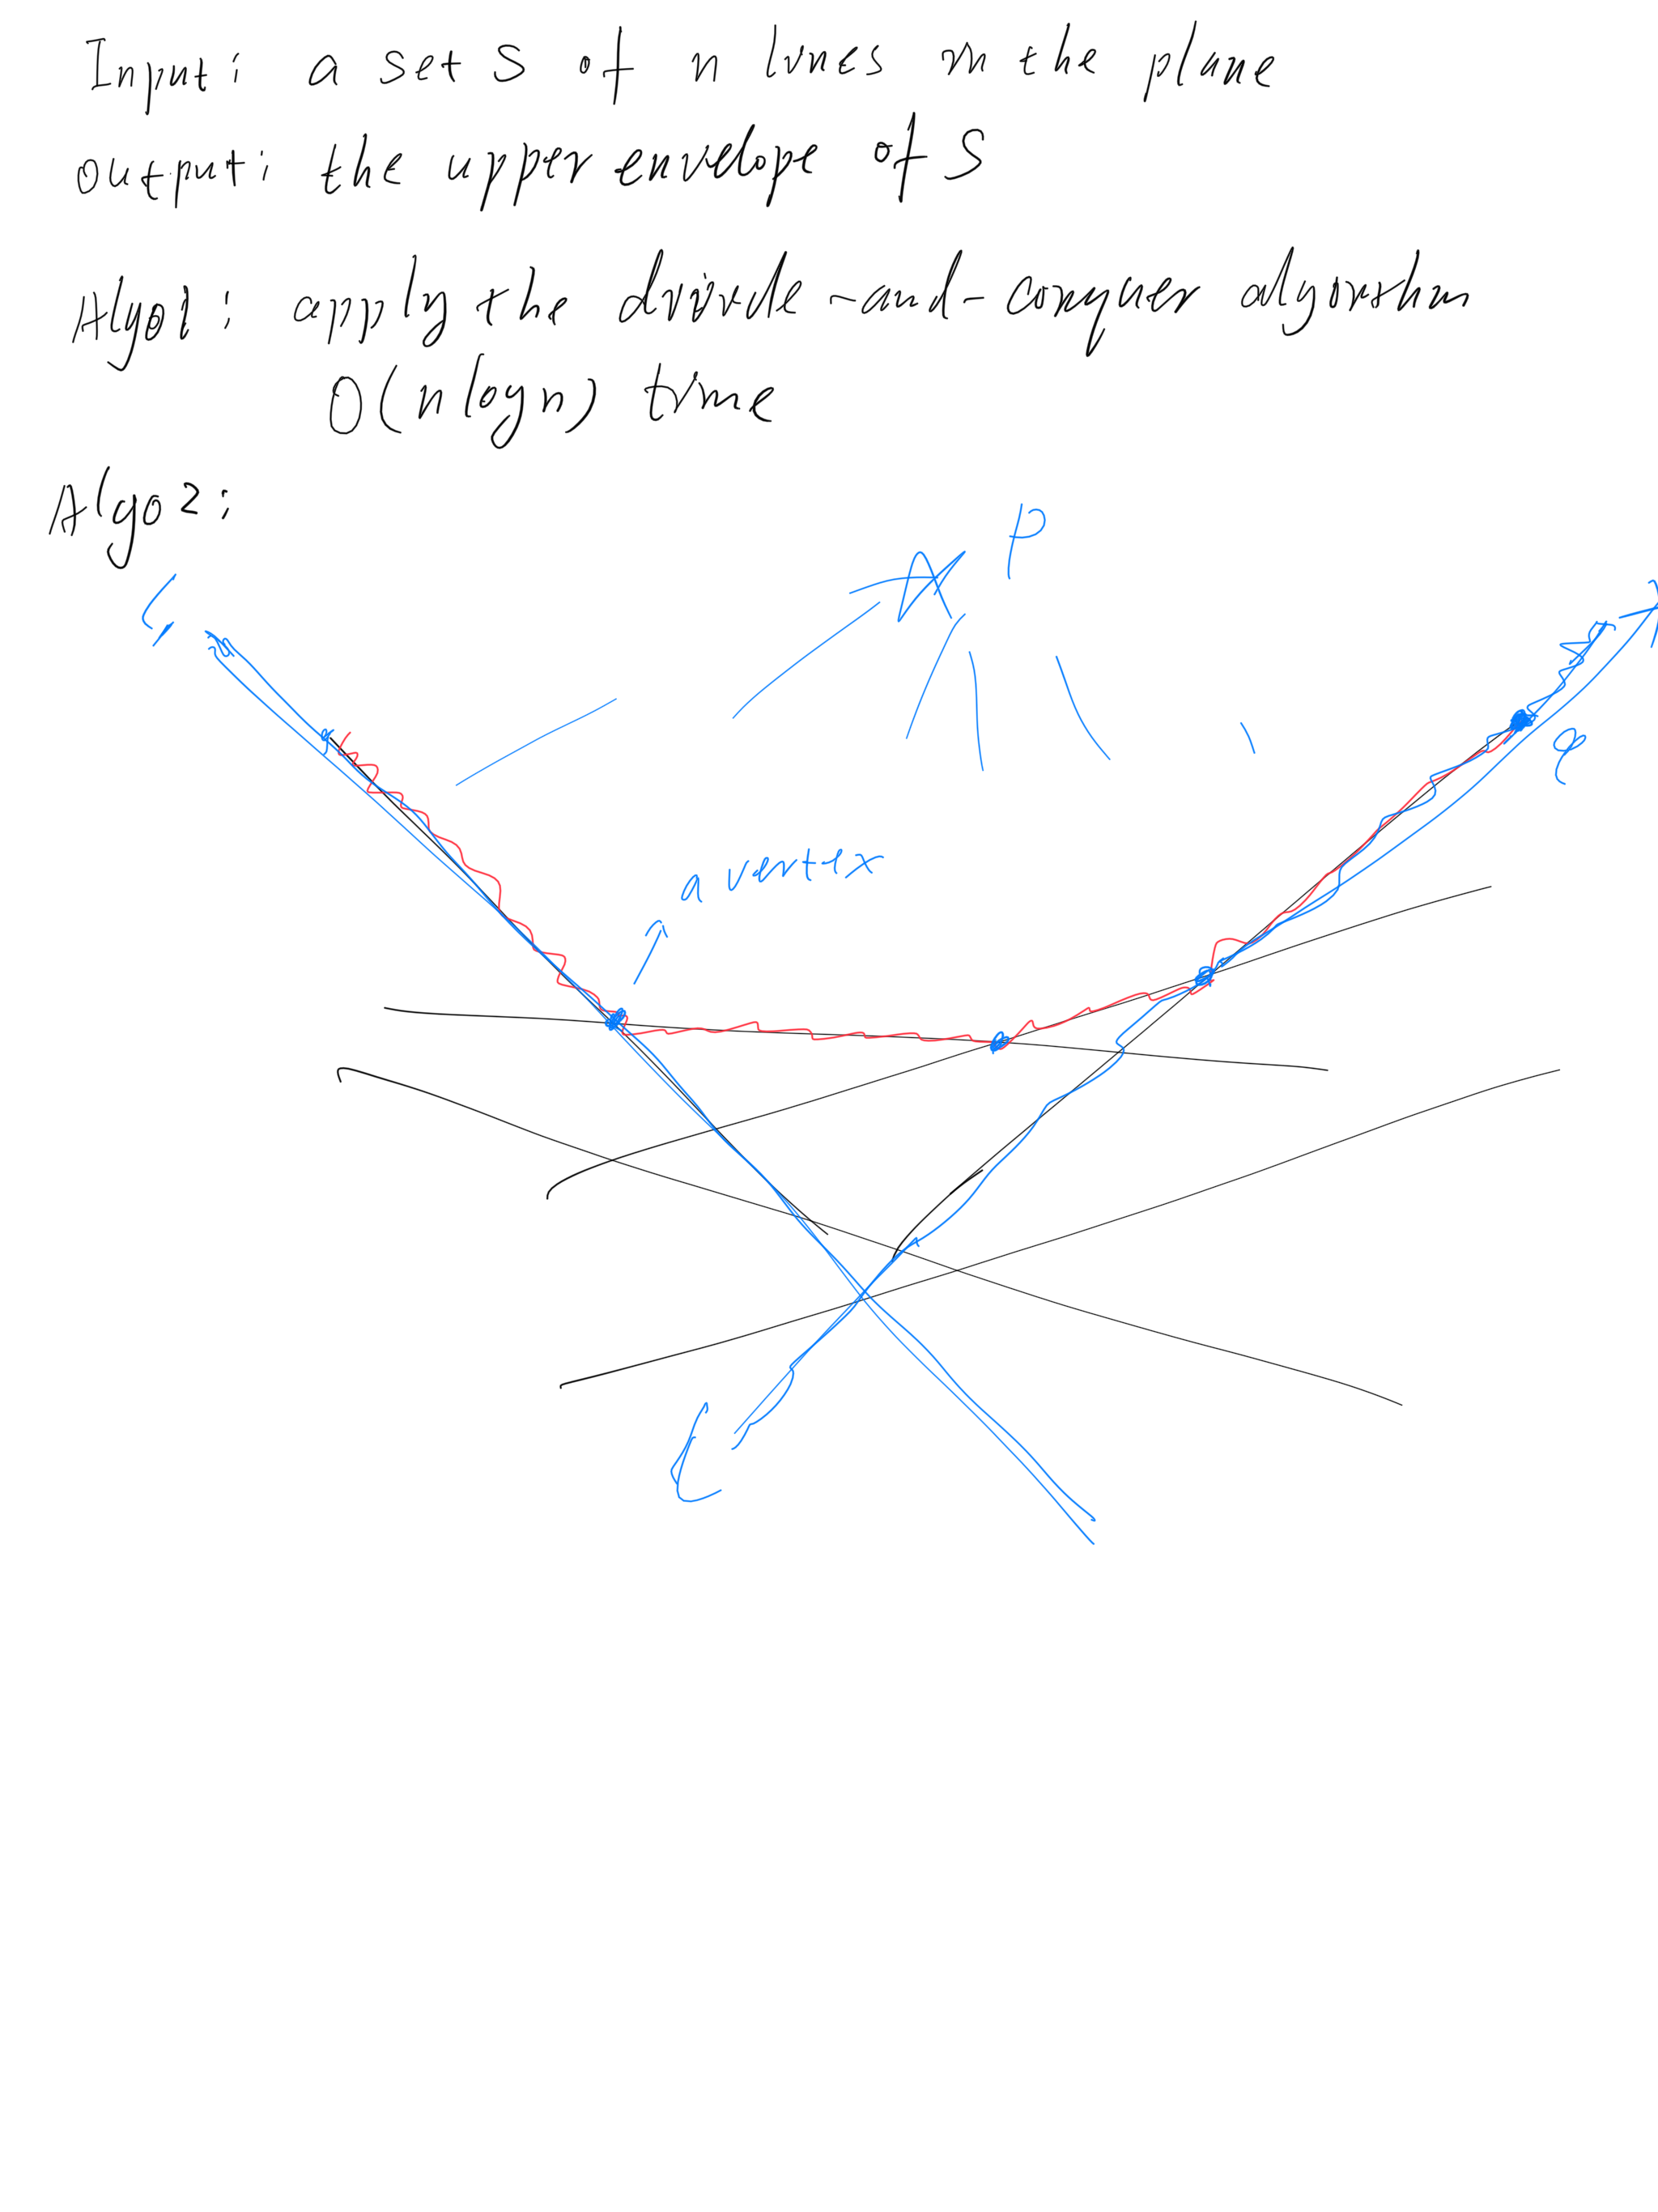 Input: a set S of n lines in the plane
output: the upper envelope of S
Algo1: apply the divide-and-conquer algorithm
O(n log n) time
Algo2:
P
a vertex